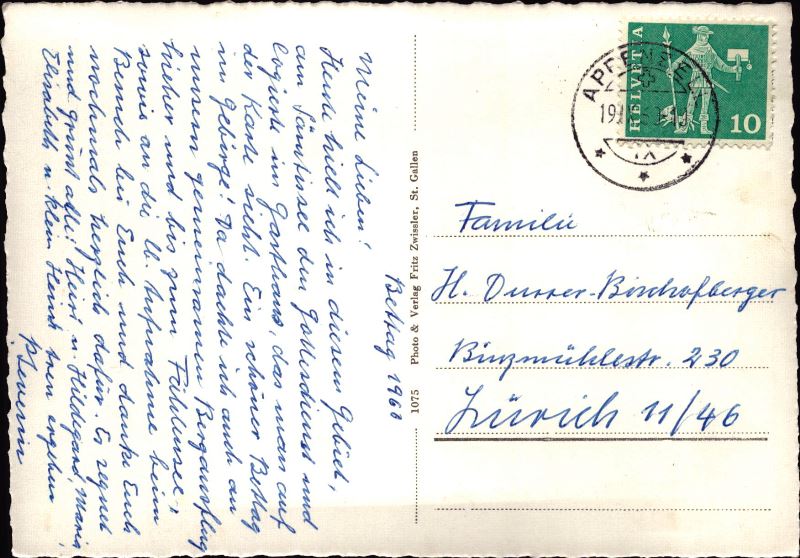 Bettag 1960
Meine Lieben!
Heute hielt ich in diesem Gebiet,
am Sämtisersee den Gottesdienst und
logierte im Gasthaus, das man auf
der Karte sieht. Ein schöner Bettag
im Gebirge! Da dachte ich auch an
unsern gemeinsamen Bergausflug
hieher und bis zum Fählensee,
sowie an die lb. Aufnahme beim
Besuch bei Euch und danke Euch
nochmals herzlich dafür. Es regnet
und grüsst alle: Heiri u. Hildegard, Maria,
Elisabeth u. klein Heinrich Euer ergebener
P. Severin
1075 Photo & Verlag Fritz Zwissler, St. Gallen
HELVETIA
10
APPENZELL
IX
Familie
H. Durrer-Bischofberger
Binzmühlestr. 230
Zürich 11/46